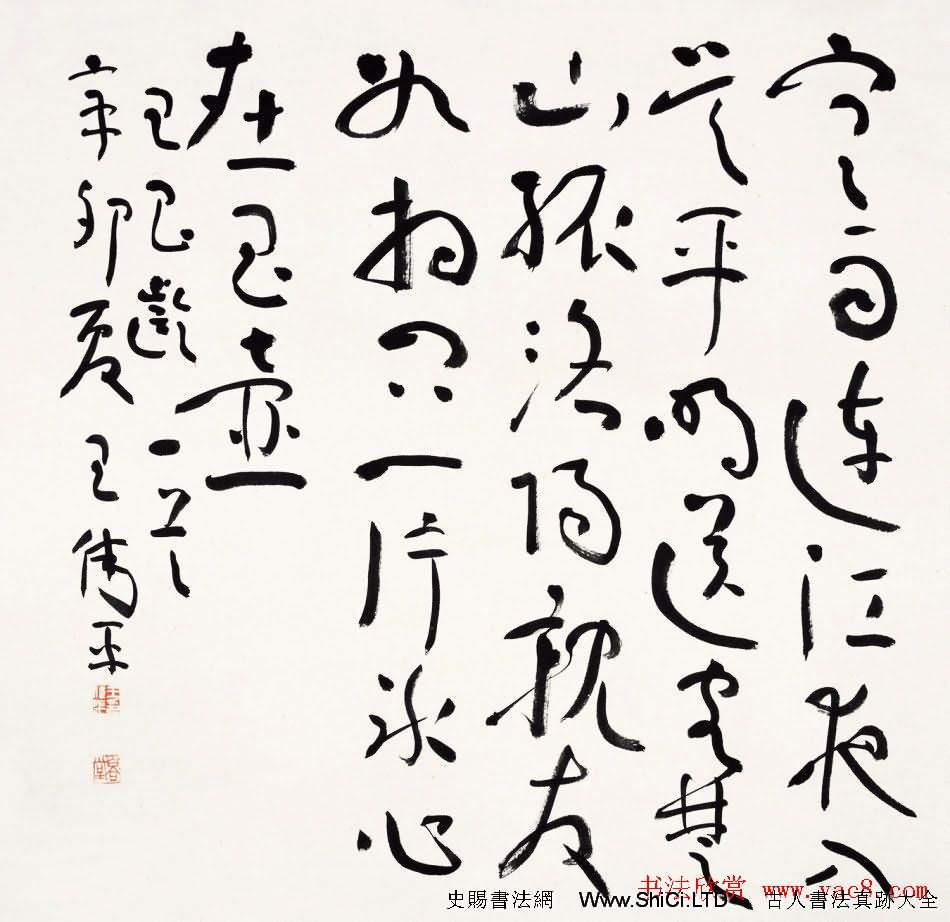 寒雨連江夜入
吳平明送客楚
山孤洛陽親友
如相問一片冰心
在玉壺
王昌齡一首
辛卯夏王偉平
书法欣赏 www.yac8.com
史賜書法網 Www.ShiCi.LTD 古人書法真跡大全